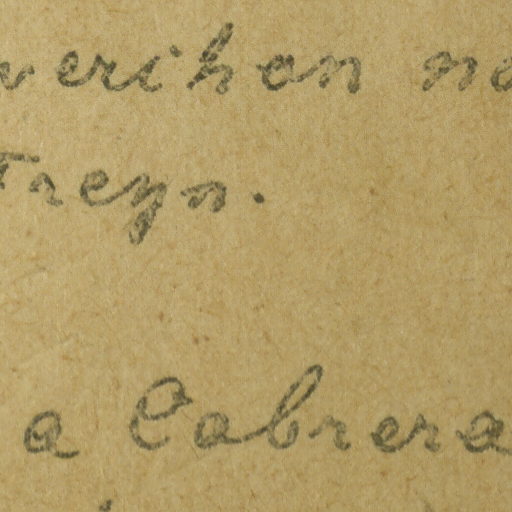 verihon no
treyn.
a Cabrera